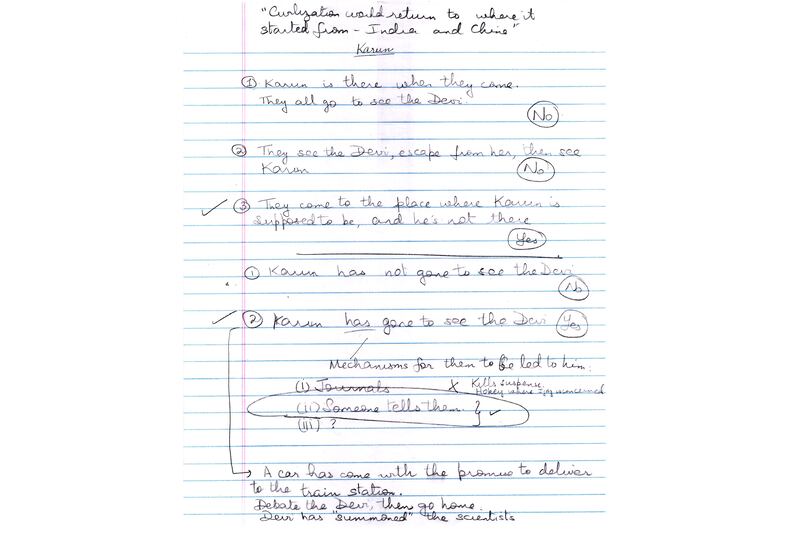 "Civilization would return to where it
started from - India and China"
Karun
① Karun is there when they come.
They all go to see the Devi.
No
② They see the Devi, escape from her, then see
Karun
No
✓ ③ They come to the place where Karun is
supposed to be, and he's not there
Yes
① Karun has not gone to see the Devi
No
✓ ② Karun has gone to see the Devi Yes
Mechanisms for them to be led to him:
(i) Journals X Kills suspense
Hokey where
(ii) Someone tells them. ✓
(iii) ?
→ A car has come with the promise to deliver
to the train station.
Debate the Devi, then go home.
Devi has "summoned" the scientists